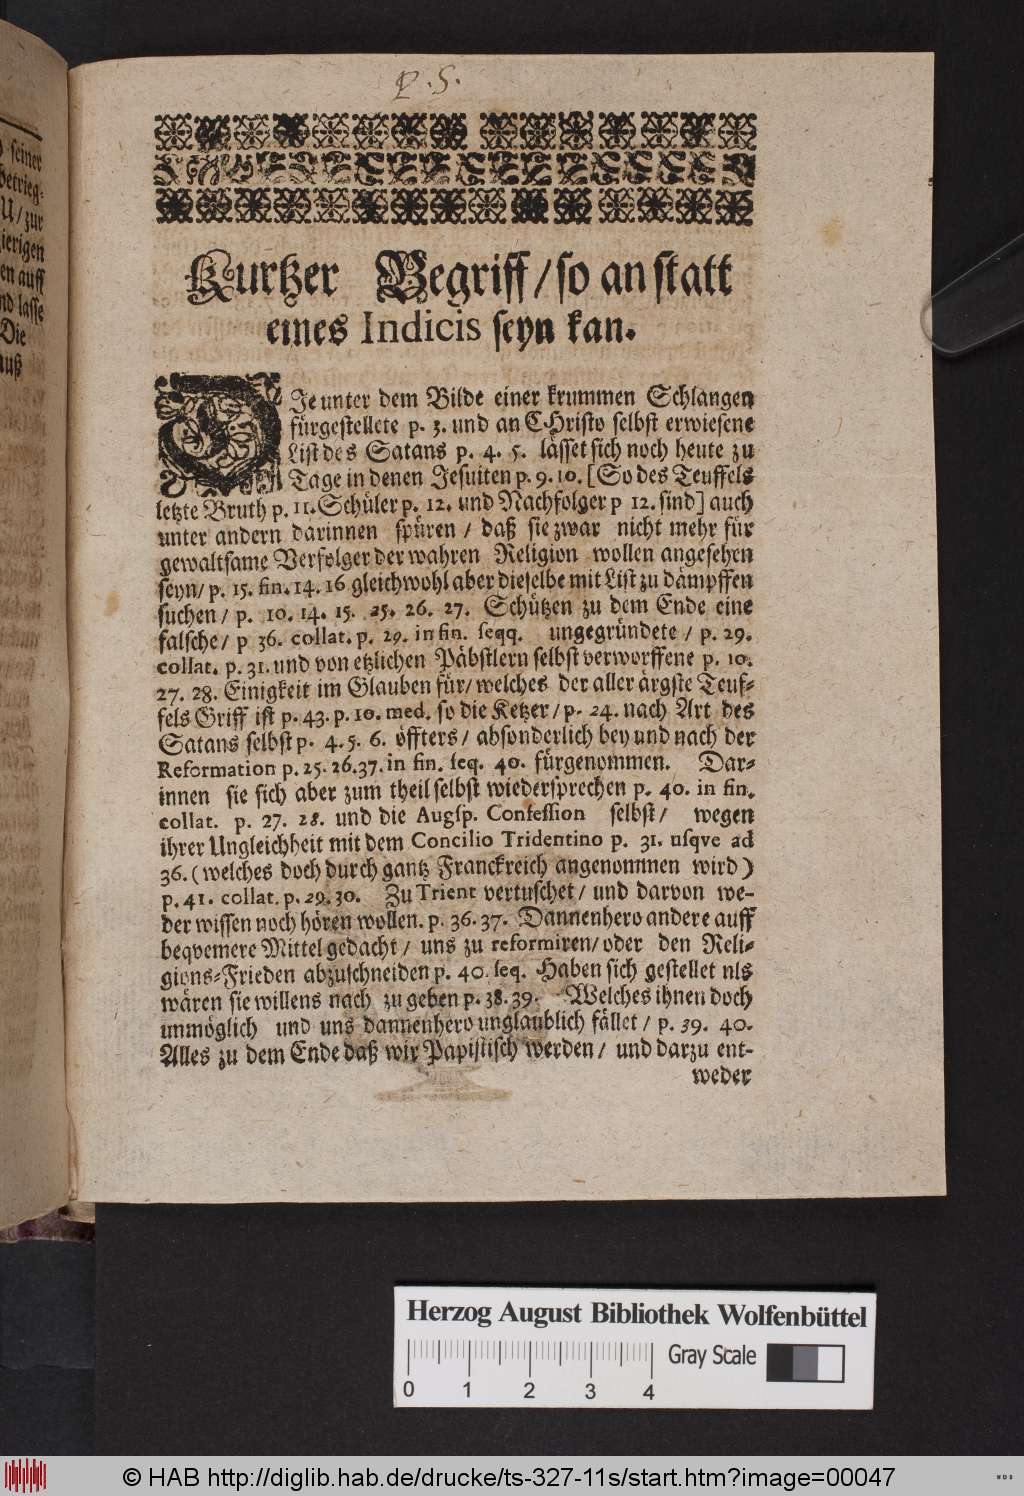 P. S.
seiner
betrieg-
U/zur
ierigen
en auff
nd lasse
Die
auß
Kurtzer Begriff/so an statt
eines Indicis seyn kan.
DIe unter dem Bilde einer krummen Schlangen
fürgestellete p. 3. und an CHristo selbst erwiesene
List des Satans p. 4. 5. lässet sich noch heute zu
Tage in denen Jesuiten p. 9. 10. [So des Teuffels
letzte Bruth p. 11. Schüler p. 12. und Nachfolger p 12. sind] auch
unter andern darinnen spüren / daß sie zwar nicht mehr für
gewaltsame Verfolger der wahren Religion wollen angesehen
seyn/ p. 15. fin. 14. 16 gleichwohl aber dieselbe mit List zu dämpffen
suchen / p. 10. 14. 15. 25. 26. 27. Schützen zu dem Ende eine
falsche/ p 36. collat. p. 29. in fin. seqq. ungegründete / p. 29.
collat. p. 31. und von etzlichen Päbstlern selbst verworffene p. 10.
27. 28. Einigkeit im Glauben für/ welches der aller ärgste Teuf-
fels Griff ist p. 43. p. 10. med. so die Ketzer / p. 24. nach Art des
Satans selbst p. 4. 5. 6. öffters/ absonderlich bey und nach der
Reformation p. 25. 26. 37. in fin. seq. 40. fürgenommen. Dar-
innen sie sich aber zum theil selbst wiedersprechen p. 40. in fin.
collat. p. 27. 28. und die Augsp. Confession selbst/ wegen
ihrer Ungleichheit mit dem Concilio Tridentino p. 31. usqve ad
36. (welches doch durch gantz Franckreich angenommen wird)
p. 41. collat. p. 29. 30. Zu Trient vertuschet/ und darvon we-
der wissen noch hören wollen. p. 36. 37. Dannenhero andere auff
beqvemere Mittel gedacht / uns zu reformiren/ oder den Reli-
gions-Frieden abzuschneiden p. 40. seq. Haben sich gestellet als
wären sie willens nach zu geben p. 38. 39. Welches ihnen doch
unmöglich und uns dannenhero unglaublich fället / p. 39. 40.
Alles zu dem Ende daß wir Papistisch werden/ und darzu ent-
weder
Herzog August Bibliothek Wolfenbüttel
Gray Scale
0 1 2 3 4
© HAB http://diglib.hab.de/drucke/ts-327-11s/start.htm?image=00047